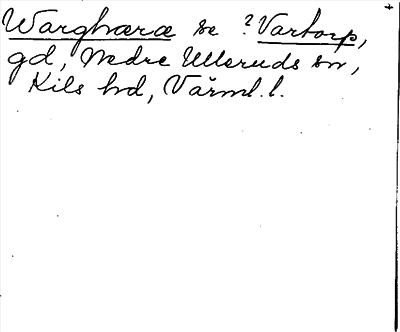 Warghæræ se ? Vartorp,
gd, Nedre Ulleruds sn,
Kils hd, Värml. l.